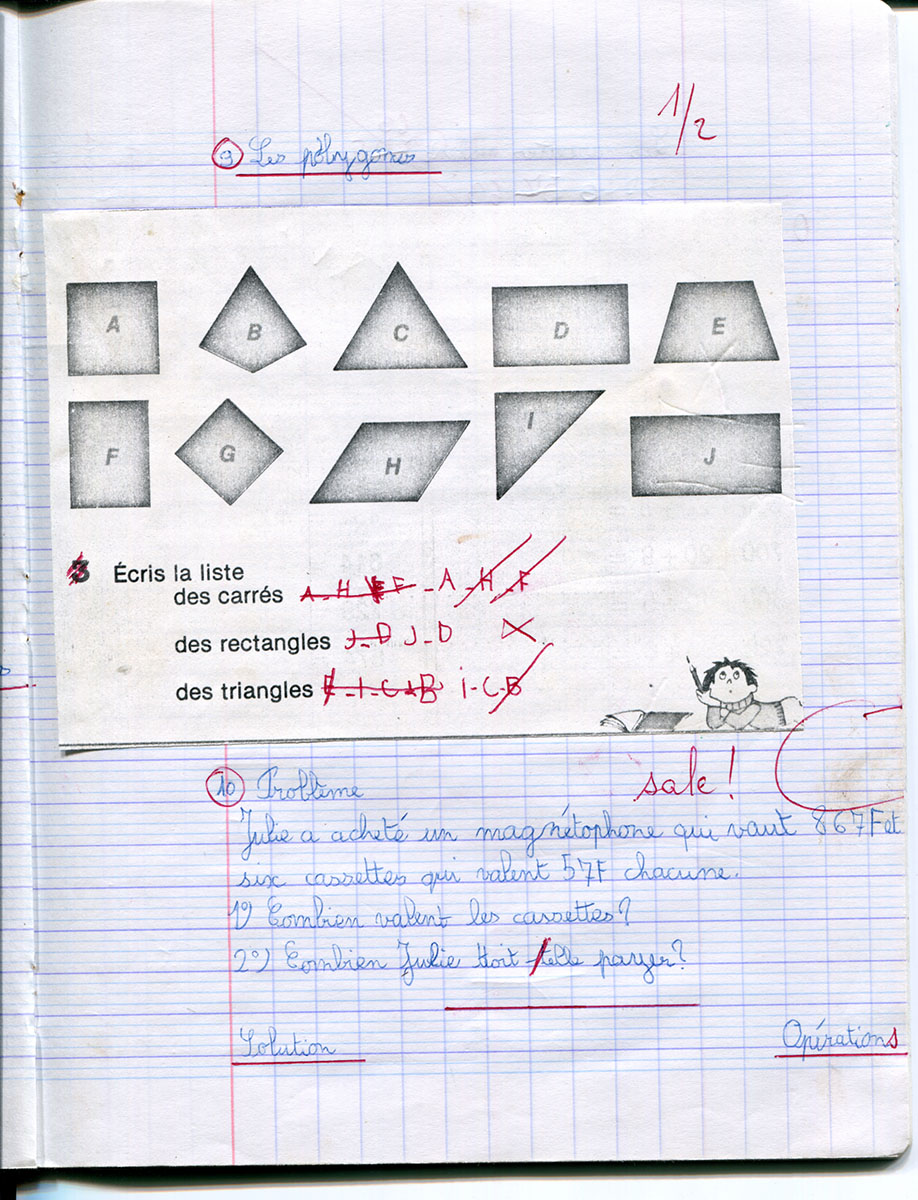 1/2
9 Les polygones
A B C D E
F G H I J
3 Écris la liste
des carrés A - H F - A - H - F
des rectangles J - D J - D
des triangles E - I - C - B I - C - B
sale !
10 Problème
Julie a acheté un magnétophone qui vaut 867F et
six cassettes qui valent 57F chacune.
1°) Combien valent les cassettes ?
2°) Combien Julie doit-elle payer ?
Solution Opérations